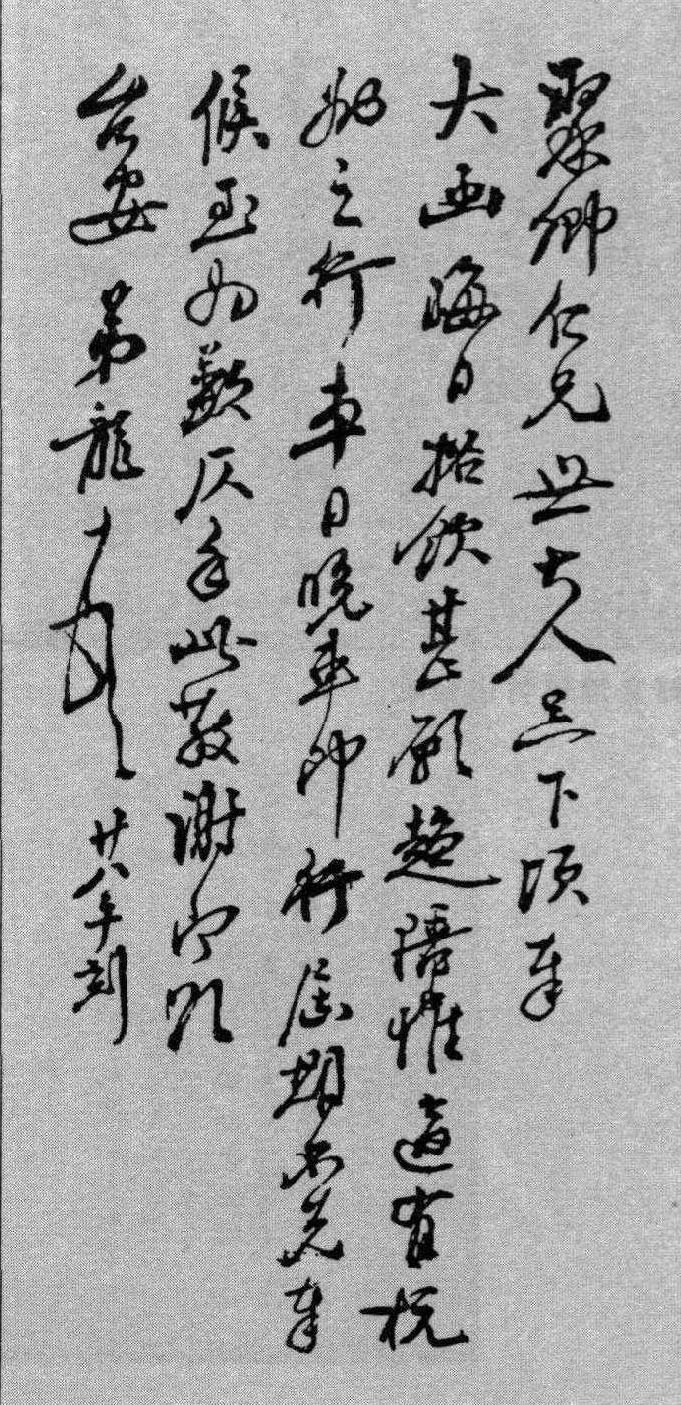 聚卿仁兄世大人足下頃奉
大函晦日招飲甚願趨陪惟適有杭
州之行車日晚車即行屆期不克奉
候至为歉仄手此敬謝即頌
台安 弟龍 廿八午刻